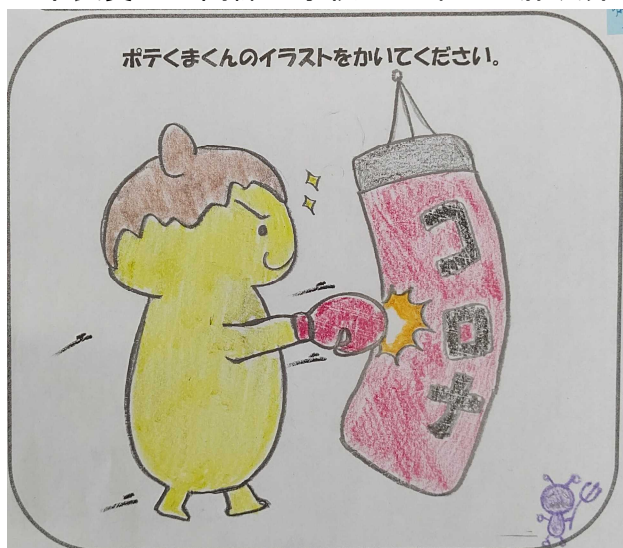 ポテくまくんのイラストをかいてください。
コロナ